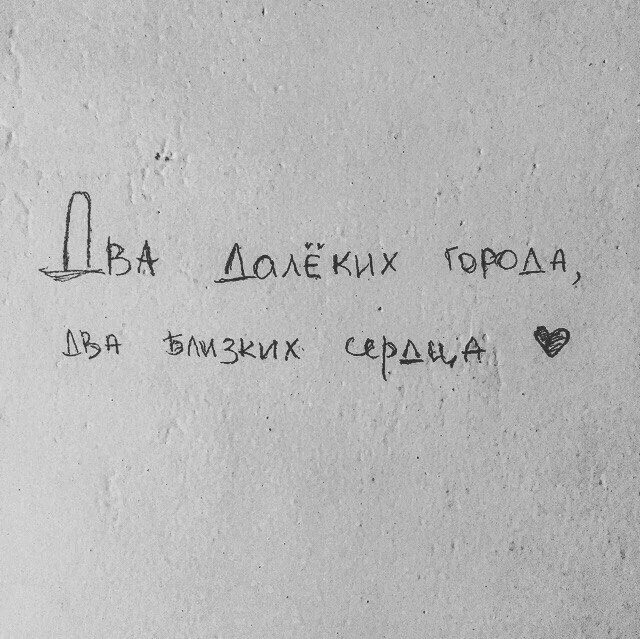 Два далёких города,
два близких сердца ♥